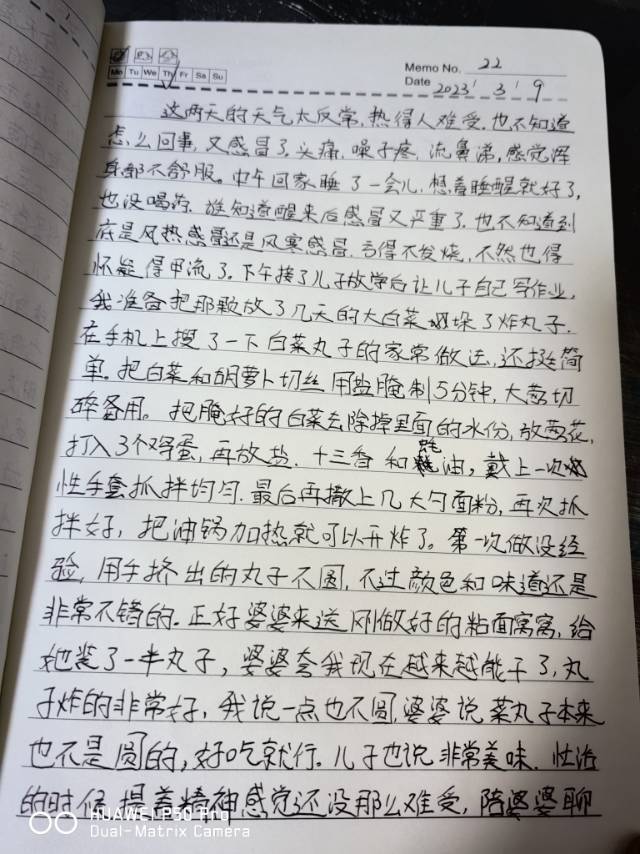 Memo No. 22
Mo Tu We Th Fr Sa Su
Date 2023 3 9
这两天的天气太反常,热得人难受.也不知道
怎么回事,又感冒了,头痛,嗓子疼,流鼻涕,感觉浑
身都不舒服。中午回家睡了一会儿,想着睡醒就好了,
也没喝药.谁知道醒来后感冒又严重了.也不知道到
底是风热感冒还是风寒感冒.亏得不发烧,不然也得
怀疑得甲流了.下午接了儿子放学后让儿子自己写作业,
我准备把那颗放了几天的大白菜剁了炸丸子.
在手机上搜了一下白菜丸子的家常做法,还挺简
单.把白菜和胡萝卜切丝用盐腌制15分钟,大葱切
碎备用。把腌好的白菜去除掉里面的水份,放葱花,
打入3个鸡蛋,再放盐.十三香和耗油,戴上一次
性手套抓拌均匀.最后再撒上几大勺面粉,再次抓
拌好,把油锅加热就可以开炸了。第一次做没经
验,用手挤出的丸子不圆,不过颜色和味道还是
非常不错的.正好婆婆来送刚做好的粘面窝窝,给
她装了一半丸子,婆婆夸我现在越来越能干了,丸
子炸的非常好,我说一点也不圆,婆婆说菜丸子本来
也不是圆的,好吃就行.儿子也说非常美味.忙活
的时候,提着精神感觉还没那么难受,陪婆婆聊
HUAWEI P30 Pro
Dual-Matrix Camera